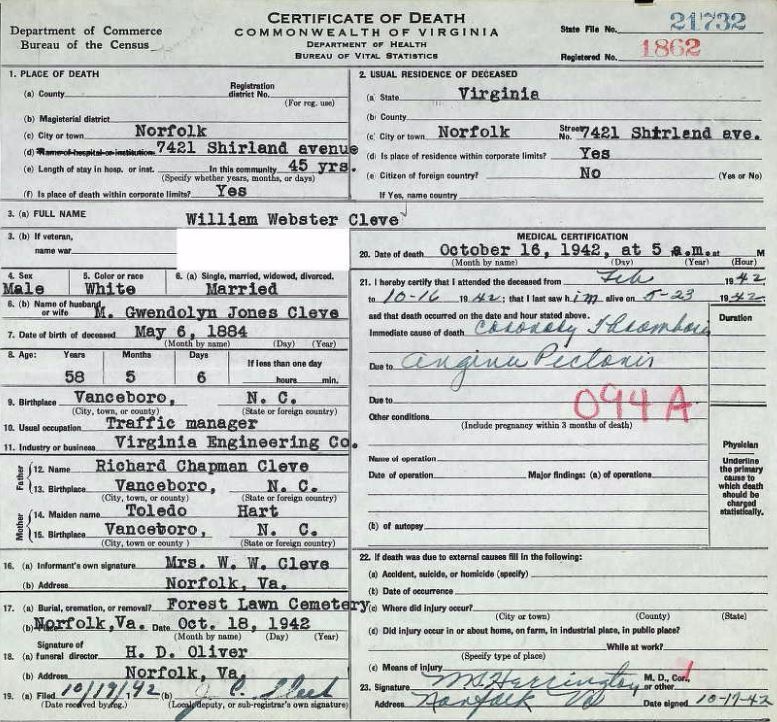 Department of Commerce
Bureau of the Census
CERTIFICATE OF DEATH
COMMONWEALTH OF VIRGINIA
DEPARTMENT OF HEALTH
BUREAU OF VITAL STATISTICS
State File No. 21732
Registered No. 1862
1. PLACE OF DEATH
(a) County Registration district No. (For reg. use)
(b) Magisterial district
(c) City or town Norfolk
(d) Name of hospital or institution 7421 Shirland avenue
(e) Length of stay in hosp. or inst. In this community 45 yrs.
(Specify whether years, months, or days)
(f) Is place of death within corporate limits? Yes
2. USUAL RESIDENCE OF DECEASED
(a) State Virginia
(b) County
(c) City or town Norfolk Street No. 7421 Shirland ave.
(d) Is place of residence within corporate limits? Yes
(e) Citizen of foreign country? No (Yes or No)
If Yes, name country
3. (a) FULL NAME William Webster Cleve
3. (b) If veteran, name war
4. Sex Male
5. Color or race White
6. (a) Single, married, widowed, divorced. Married
6. (b) Name of husband or wife M. Gwendolyn Jones Cleve
7. Date of birth of deceased May 6, 1884
(Month by name) (Day) (Year)
8. Age: Years Months Days If less than one day
58 5 6 hours min.
9. Birthplace Vanceboro, N. C.
(City, town, or county) (State or foreign country)
10. Usual occupation Traffic manager
11. Industry or business Virginia Engineering Co.
Father
12. Name Richard Chapman Cleve
13. Birthplace Vanceboro, N. C.
(City, town, or county) (State or foreign country)
Mother
14. Maiden name Toledo Hart
15. Birthplace Vanceboro, N. C.
(City, town, or county ) (State or foreign country)
16. (a) Informant's own signature Mrs. W. W. Cleve
(b) Address Norfolk, Va.
17. (a) Burial, cremation, or removal? Forest Lawn Cemetery
(b) Norfolk,Va. Date Oct. 18, 1942
(Month by name) (Day) (Year)
18. Signature of (a) funeral director H. D. Oliver
(b) Address Norfolk, Va.
19. (a) Filed 10/19/42 (b)
(Date received by reg.) (Local, deputy, or sub-registrar's own signature)
MEDICAL CERTIFICATION
20. Date of death October 16, 1942, at 5 a.m. at M
(Month by name) (Day) (Year) (Hour)
21. I hereby certify that I attended the deceased from Feb 1942
to 10-16 1942; that I last saw him alive on 8-23 1942
and that death occurred on the date and hour stated above.
Duration
Immediate cause of death Coronary Thrombosis
Due to Angina Pectoris
Due to
094 A
Other conditions
(Include pregnancy within 3 months of death)
Name of operation
Date of operation Major findings: (a) of operations
(b) of autopsy
Physician
Underline the primary cause to which death should be charged statistically.
22. If death was due to external causes fill in the following:
(a) Accident, suicide, or homicide (specify)
(b) Date of occurrence
(c) Where did injury occur?
(City or town) (County) (State)
(d) Did injury occur in or about home, on farm, in industrial place, in public place?
While at work?
(Specify type of place)
(e) Means of injury
23. Signature Herrington M. D., Cor. or other
Address Norfolk Va Date signed 10-17-42